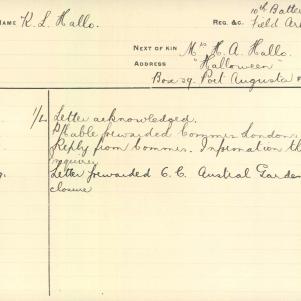 10th Batte
NAME K. L. Hallo. REG. &C. Field Ar
NEXT OF KIN Mrs H. A. Hallo.
ADDRESS "Halloween"
Box 59. Port Augusta
1/L Letter acknowledged.
P/cable forwarded Commis London
Reply from Commis. Information th
inquiries
Letter forwarded C.C. Austral Garde
closure